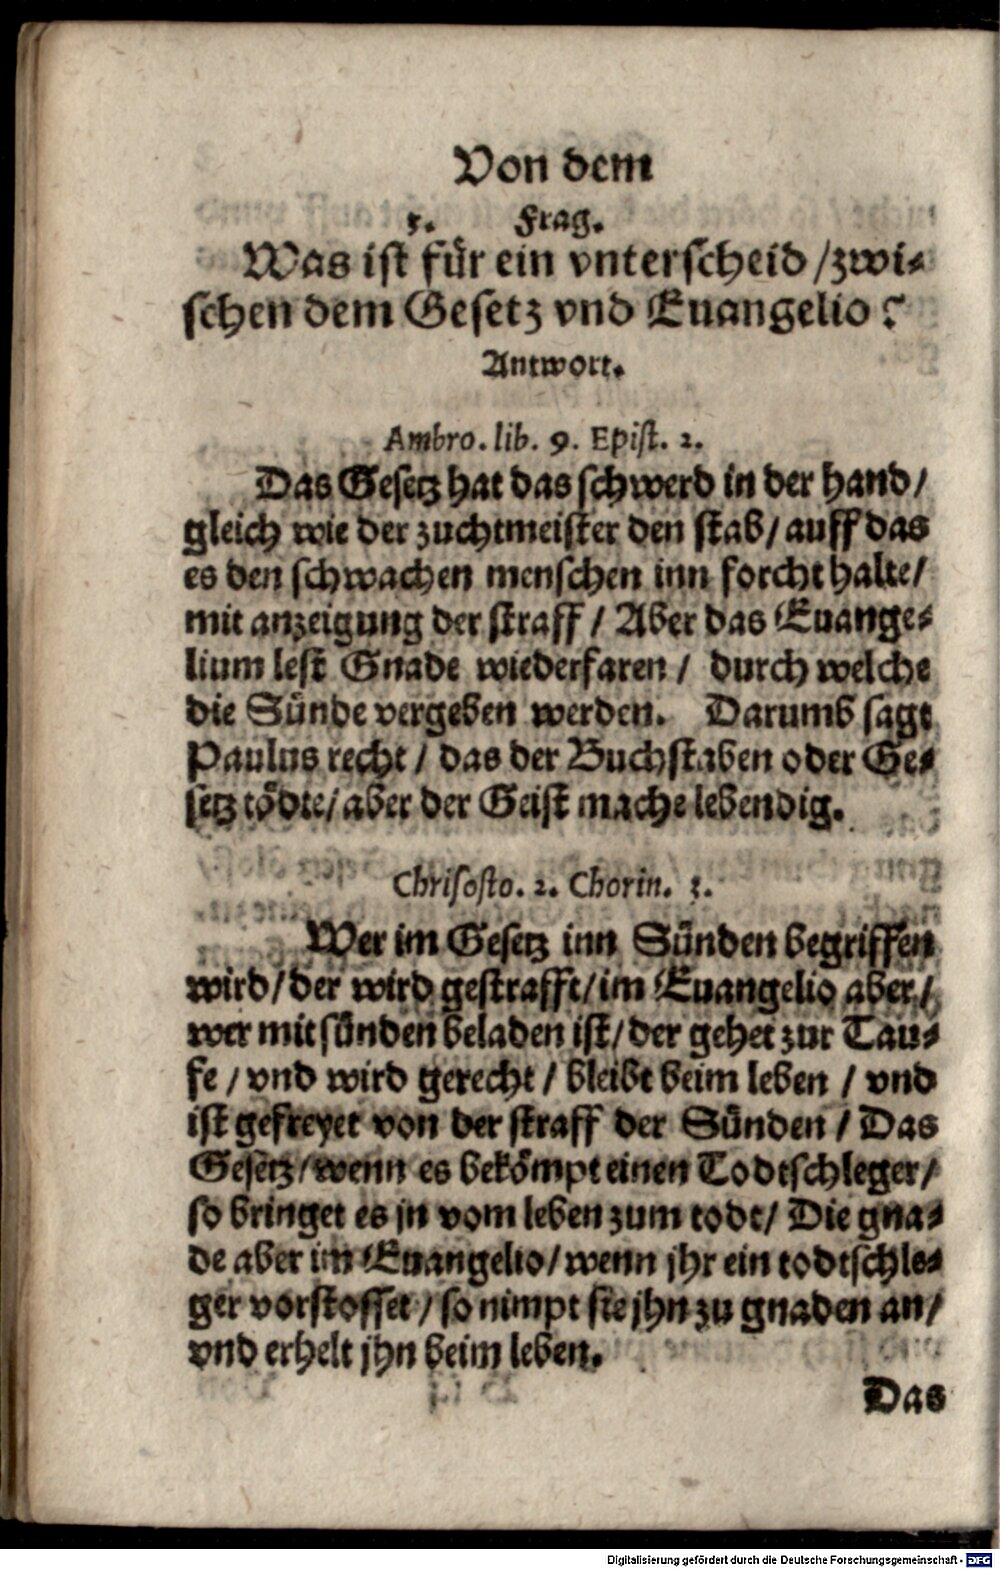 Von dem
3. Frag.
Was ist für ein vnterscheid /zwi⸗
schen dem Gesetz vnd Euangelio?
Antwort.
Ambro. lib. 9. Epist. 2.
Das Gesetz hat das schwerd in der hand/
gleich wie der zuchtmeister den stab/ auff das
es den schwachen menschen inn forcht halte/
mit anzeigung der straff / Aber das Euange⸗
lium lest Gnade wiederfaren / durch welche
die Sünde vergeben werden. Darumb sagt
Paulus recht / das der Buchstaben oder Ge⸗
setz tödte/ aber der Geist mache lebendig.
Chrisosto. 2. Chorin. 3.
Wer im Gesetz inn Sünden begriffen
wird/ der wird gestrafft/ im Euangelio aber/
wer mit sünden beladen ist/ der gehet zur Tau⸗
fe / vnd wird gerecht / bleibt beim leben / vnd
ist gefreyet von der straff der Sünden / Das
Gesetz/ wenn es bekömpt einen Todtschleger/
so bringet es jn vom leben zum todt/ Die gna⸗
de aber im Euangelio/ wenn jhr ein todtschle⸗
ger vorstosset / so nimpt sie jhn zu gnaden an/
vnd erhelt jhn beim leben.
Das
Digitalisierung gefördert durch die Deutsche Forschungsgemeinschaft - DFG